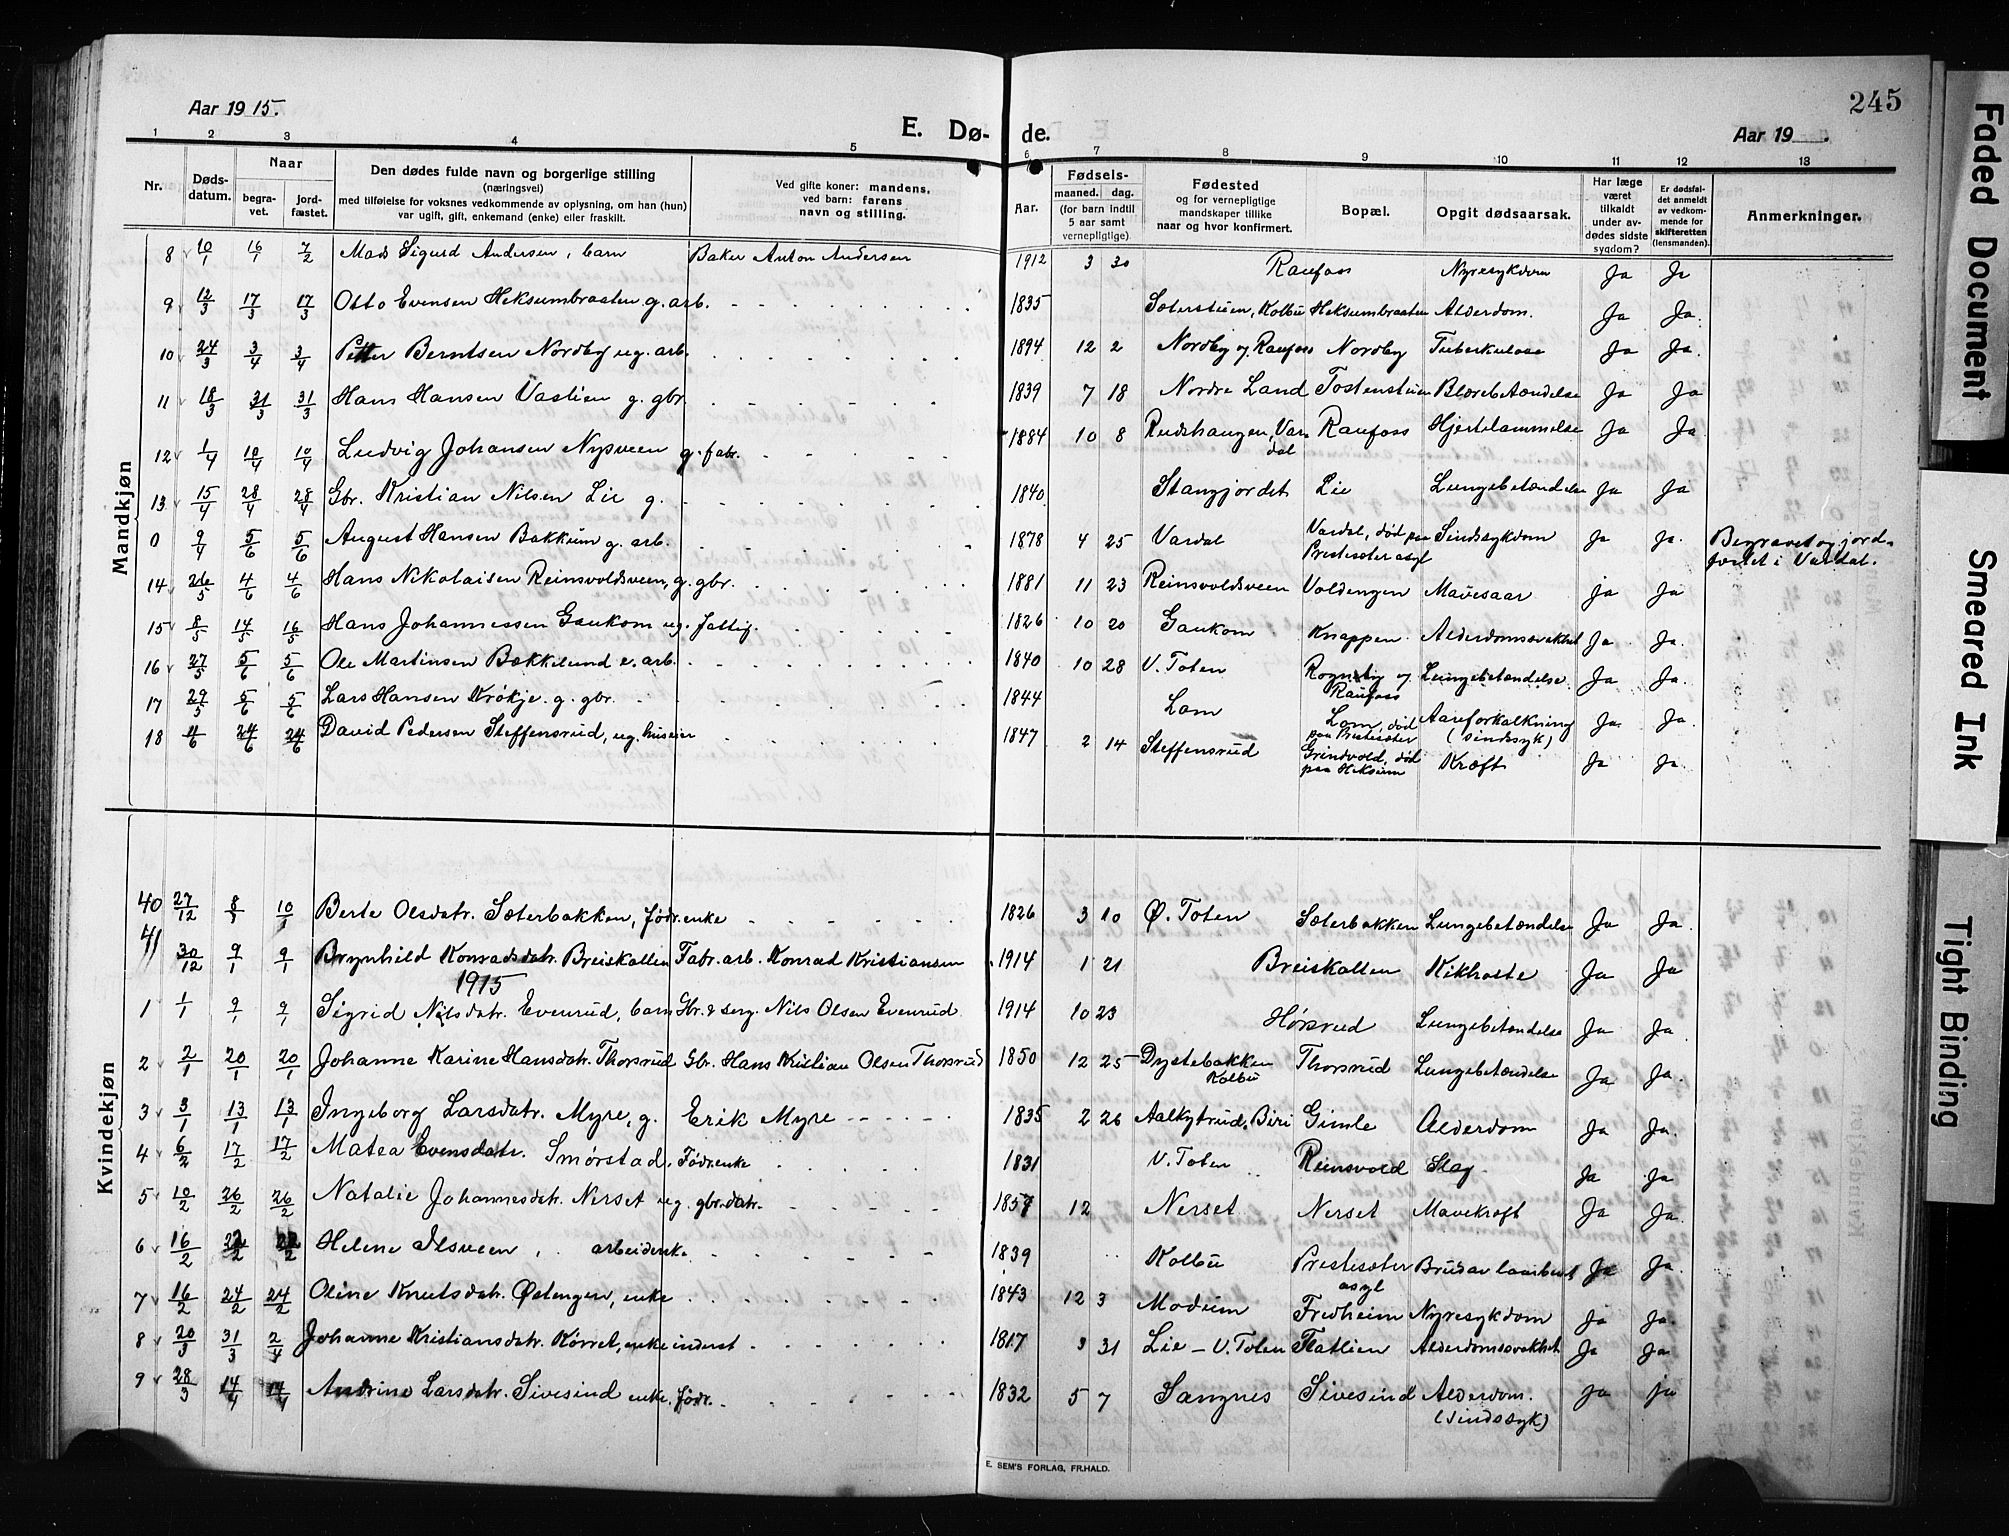 Aar 1915.
E. Dø-
de.
Aar 19 .
245
1 2 3 4 5 6 7 8 9 10 11 12 13
Nr.
Døds-
datum.
Naar
begra-
vet.
jord-
fæstet.
Den dødes fulde navn og borgerlige stilling
(næringsvei)
med tilføielse for voksnes vedkommende av oplysning, om han (hun)
var ugift, gift, enkemand (enke) eller fraskilt.
Ved gifte koner: mandens,
ved barn: farens
navn og stilling.
Aar.
Fødsels-
maaned. dag.
(for barn indtil
5 aar samt
vernepligtige).
Fødested
og for vernepligtige
mandskaper tillike
naar og hvor konfirmert.
Bopæl.
Opgit dødsaarsak.
Har læge
været
tilkaldt
under av-
dødes sidste
sygdom?
Er dødsfal-
det anmeldt
av vedkom-
mende for
skifteretten
(lensmanden).
Anmerkninger.
Mandkjøn
8 10/1 16/1 7/2 Mads Sigurd Andersen, barn Baker Anton Andersen 1912 3 30 Raufoss Nyresykdom Ja Ja
9 12/3 17/3 17/3 Otto Evensen Heksumbraaten g. arb. 1835 Sæterstuen, Kolbu Heksumbraaten Alderdom. Ja Ja.
10 24/3 3/4 3/4 Petter Berntsen Nordby ug. arb. 1894 12 2 Nordby og Raufoss Nordby Tuberkulose Ja Ja.
11 18/3 31/3 31/3 Hans Hansen Vaslien g. gbr. 1839 7 18 Nordre Land Tostenstuen Blærebetændelse Ja Ja
12 1/4 10/4 10/4 Ludvig Johansen Nysveen g. fabr. 1884 10 8 Rudshaugen, Var-
dal Raufoss Hjertelammelse Ja Ja
13 15/4 28/4 28/4 Gbr. Kristian Nilsen Lie g. 1840 Stangjordet Lie Lungebetændelse Ja Ja
0 9/4 5/6 5/6 August Hansen Bakkum g. arb. 1878 4 25 Vardal Vardal, død paa
Prestesæter asyl Sindssykdom Ja Ja. Begravet og jord-
fæstet i Vardal.
14 26/5 4/6 4/6 Hans Nikolaisen Reinsvoldsveen, g. gbr. 1881 11 23 Reinsvoldsveen Voldengen Mavesaar Ja Ja
15 8/5 14/5 16/5 Hans Johannessen Gaukom ug. Fattig. 1826 10 20 Gaukom Knappen Alderdomssvakhet Ja Ja.
16 27/5 5/6 5/6 Ole Martinsen Bækkelund e. arb. 1840 10 28 V. Toten Rognstig og
Raufoss Lungebetændelse. Ja Ja.
17 29/5 5/6 5/6 Lars Hansen Krökje g. gbr. 1844 Lom Lom, død
paa Prestesæter Aareforkalkning
(sindssyk) Ja Ja.
18 11/6 24/6 24/6 David Pedersen Steffensrud, ug. huseier 1847 2 14 Steffensrud Grindvold, død
paa Heksum Kræft Ja Ja.
Kvindekjøn
40 27/12 8/1 10/1 Berte Olsdatr. Sæterbakken, födr. enke 1826 3 10 Ø. Toten Sæterbakken Lungebetændelse Ja Ja.
41 30/12 9/1 9/1 Brynhild Konradsdatr. Breiskallen Fabr. arb. Konrad Kristiansen 1914 1 21 Breiskallen Kikhoste Ja Ja
1915
1 1/1 9/1 9/1 Sigrid Nilsdatr. Evenrud, barn Gbr. & serg. Nils Olsen Evenrud 1914 10 23 Hörsrud Lungebetændelse Ja Ja.
2 2/1 20/1 20/1 Johanne Karine Hansdatr. Thorsrud Gbr. Hans Kristian Olsen Thorsrud 1850 12 25 Dystebakken
Kolbu Thorsrud Lungebetændelse Ja Ja.
3 3/1 13/1 13/1 Ingeborg Larsdatr. Myre, g. Erik Myre 1835 2 26 Aalkytrud, Biri Gimle Alderdom Ja Ja.
4 6/2 17/2 17/2 Matea Evensdatr. Smörstad, Födr. enke 1831 V. Toten Reinsvold Slag Ja Ja
5 10/2 26/2 26/2 Natalie Johannesdatr. Nerset ug. gbr. datr. 1857 12 Nerset Nerset Mavekræft Ja Ja.
6 16/2 22/2 22/2 Helene Alsveen, arbeiderske. 1839 Kolbu Prestesæter
asyl Ja Ja.
7 16/2 24/2 24/2 Oline Knutsdatr. Østengen, enke 1843 12 3 Modum Fredheim Nyresykdom Ja Ja.
8 20/3 31/3 2/4 Johanne Kristiansdatr. Körret, enke inderst 1817 3 31 Lie - V. Toten Flatlien Alderdomssvakhet Ja Ja.
9 28/3 14/4 14/4 Andrine Larsdatr. Sivesind enke. födr. 1832 5 7 Sangnes Sivesind Alderdom.
(sindssyk) Ja ja
E. SEM'S FORLAG, FR.HALD.
Faded Document
Smeared Ink
Tight Binding